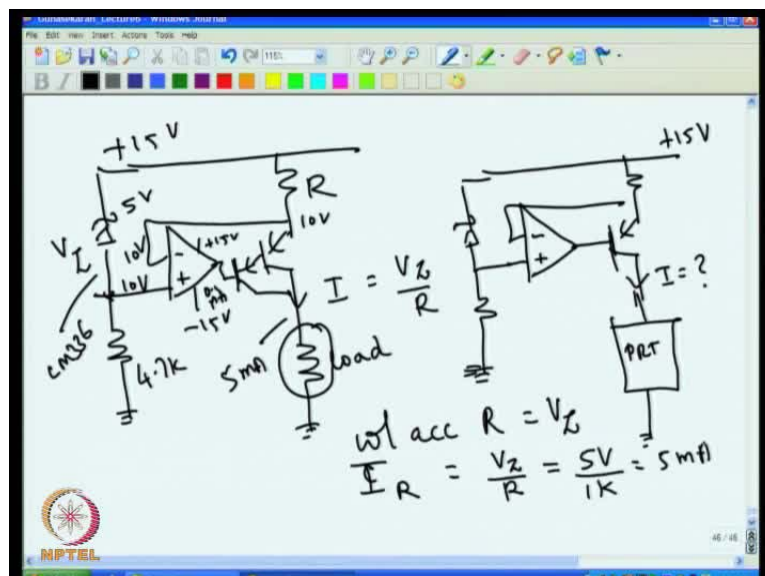 Gunasekaran_Lecture06 - Windows Journal
File Edit View Insert Actions Tools Help
115%
B I
+15V
5V
VZ
R
10V
10V
10V
+15V
-15V
LM336
4.7K
I = VZ/R
5mA
Load
+15V
I = ?
PRT
vol acc R = VZ
IR = VZ/R = 5V/1K = 5mA
46 / 46
NPTEL